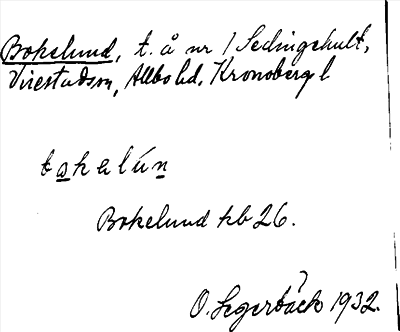 Bokelund, t. å nr 1 Sedingehult,
Virestadsn, Allbo hd. Kronobergs l
Bokelund kb 26.
O. Segerbäck 1932.